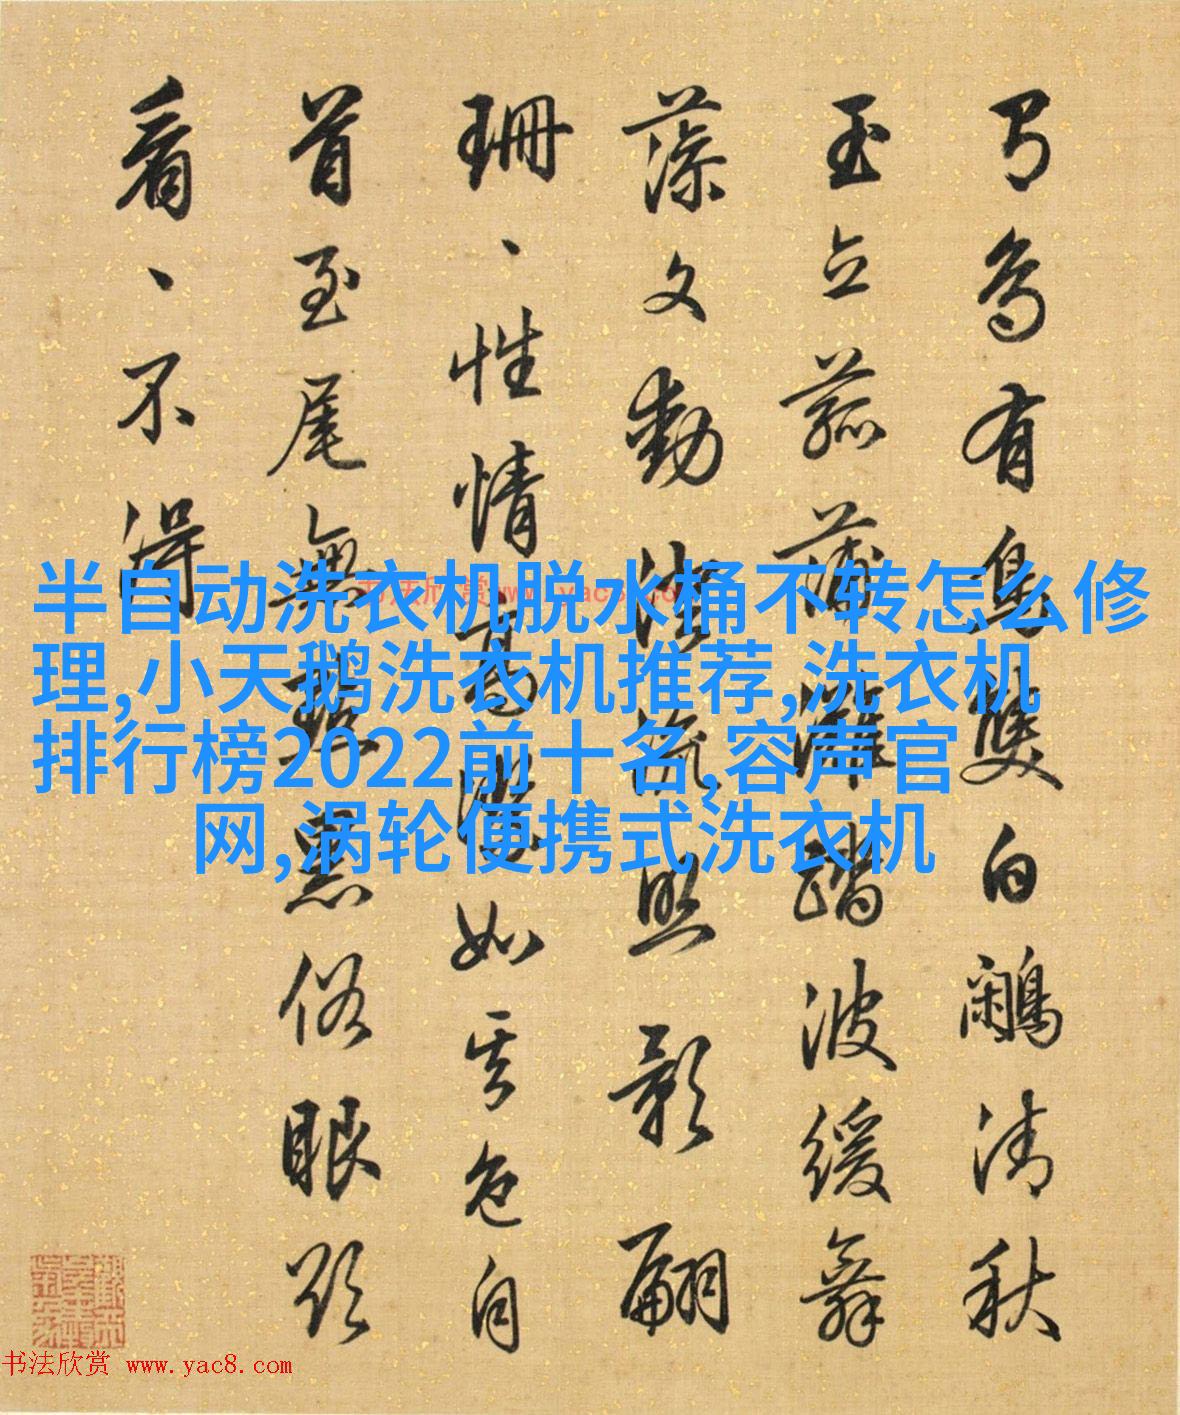 鳥有鳥雙白鷴清秋
玉立菰蒲灘踏波緩舞
藻文動流照影翩
珊、性情高潔如其色自
首至尾無點黑俗眼欲
看、不得
半自动洗衣机脱水桶不转怎么修
理,小天鹅洗衣机推荐,洗衣机
排行榜2022前十名,容声官
网,涡轮便携式洗衣机
书法欣赏 www.yac8.com